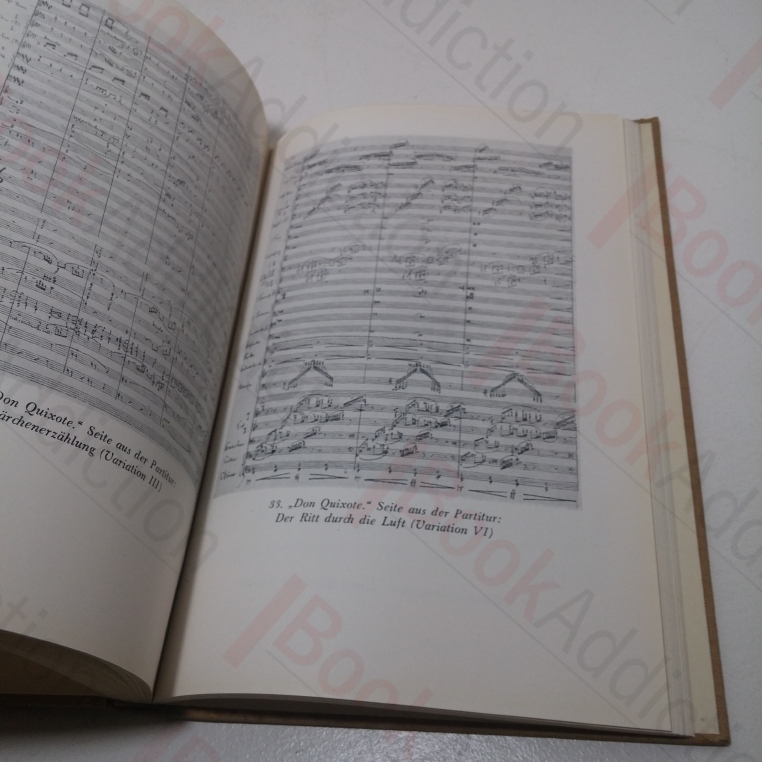 Don Quixote.“ Seite aus der Partitur:
ärchenerzählung (Variation III)
33. „Don Quixote.“ Seite aus der Partitur:
Der Ritt durch die Luft (Variation VI)
BookAddiction